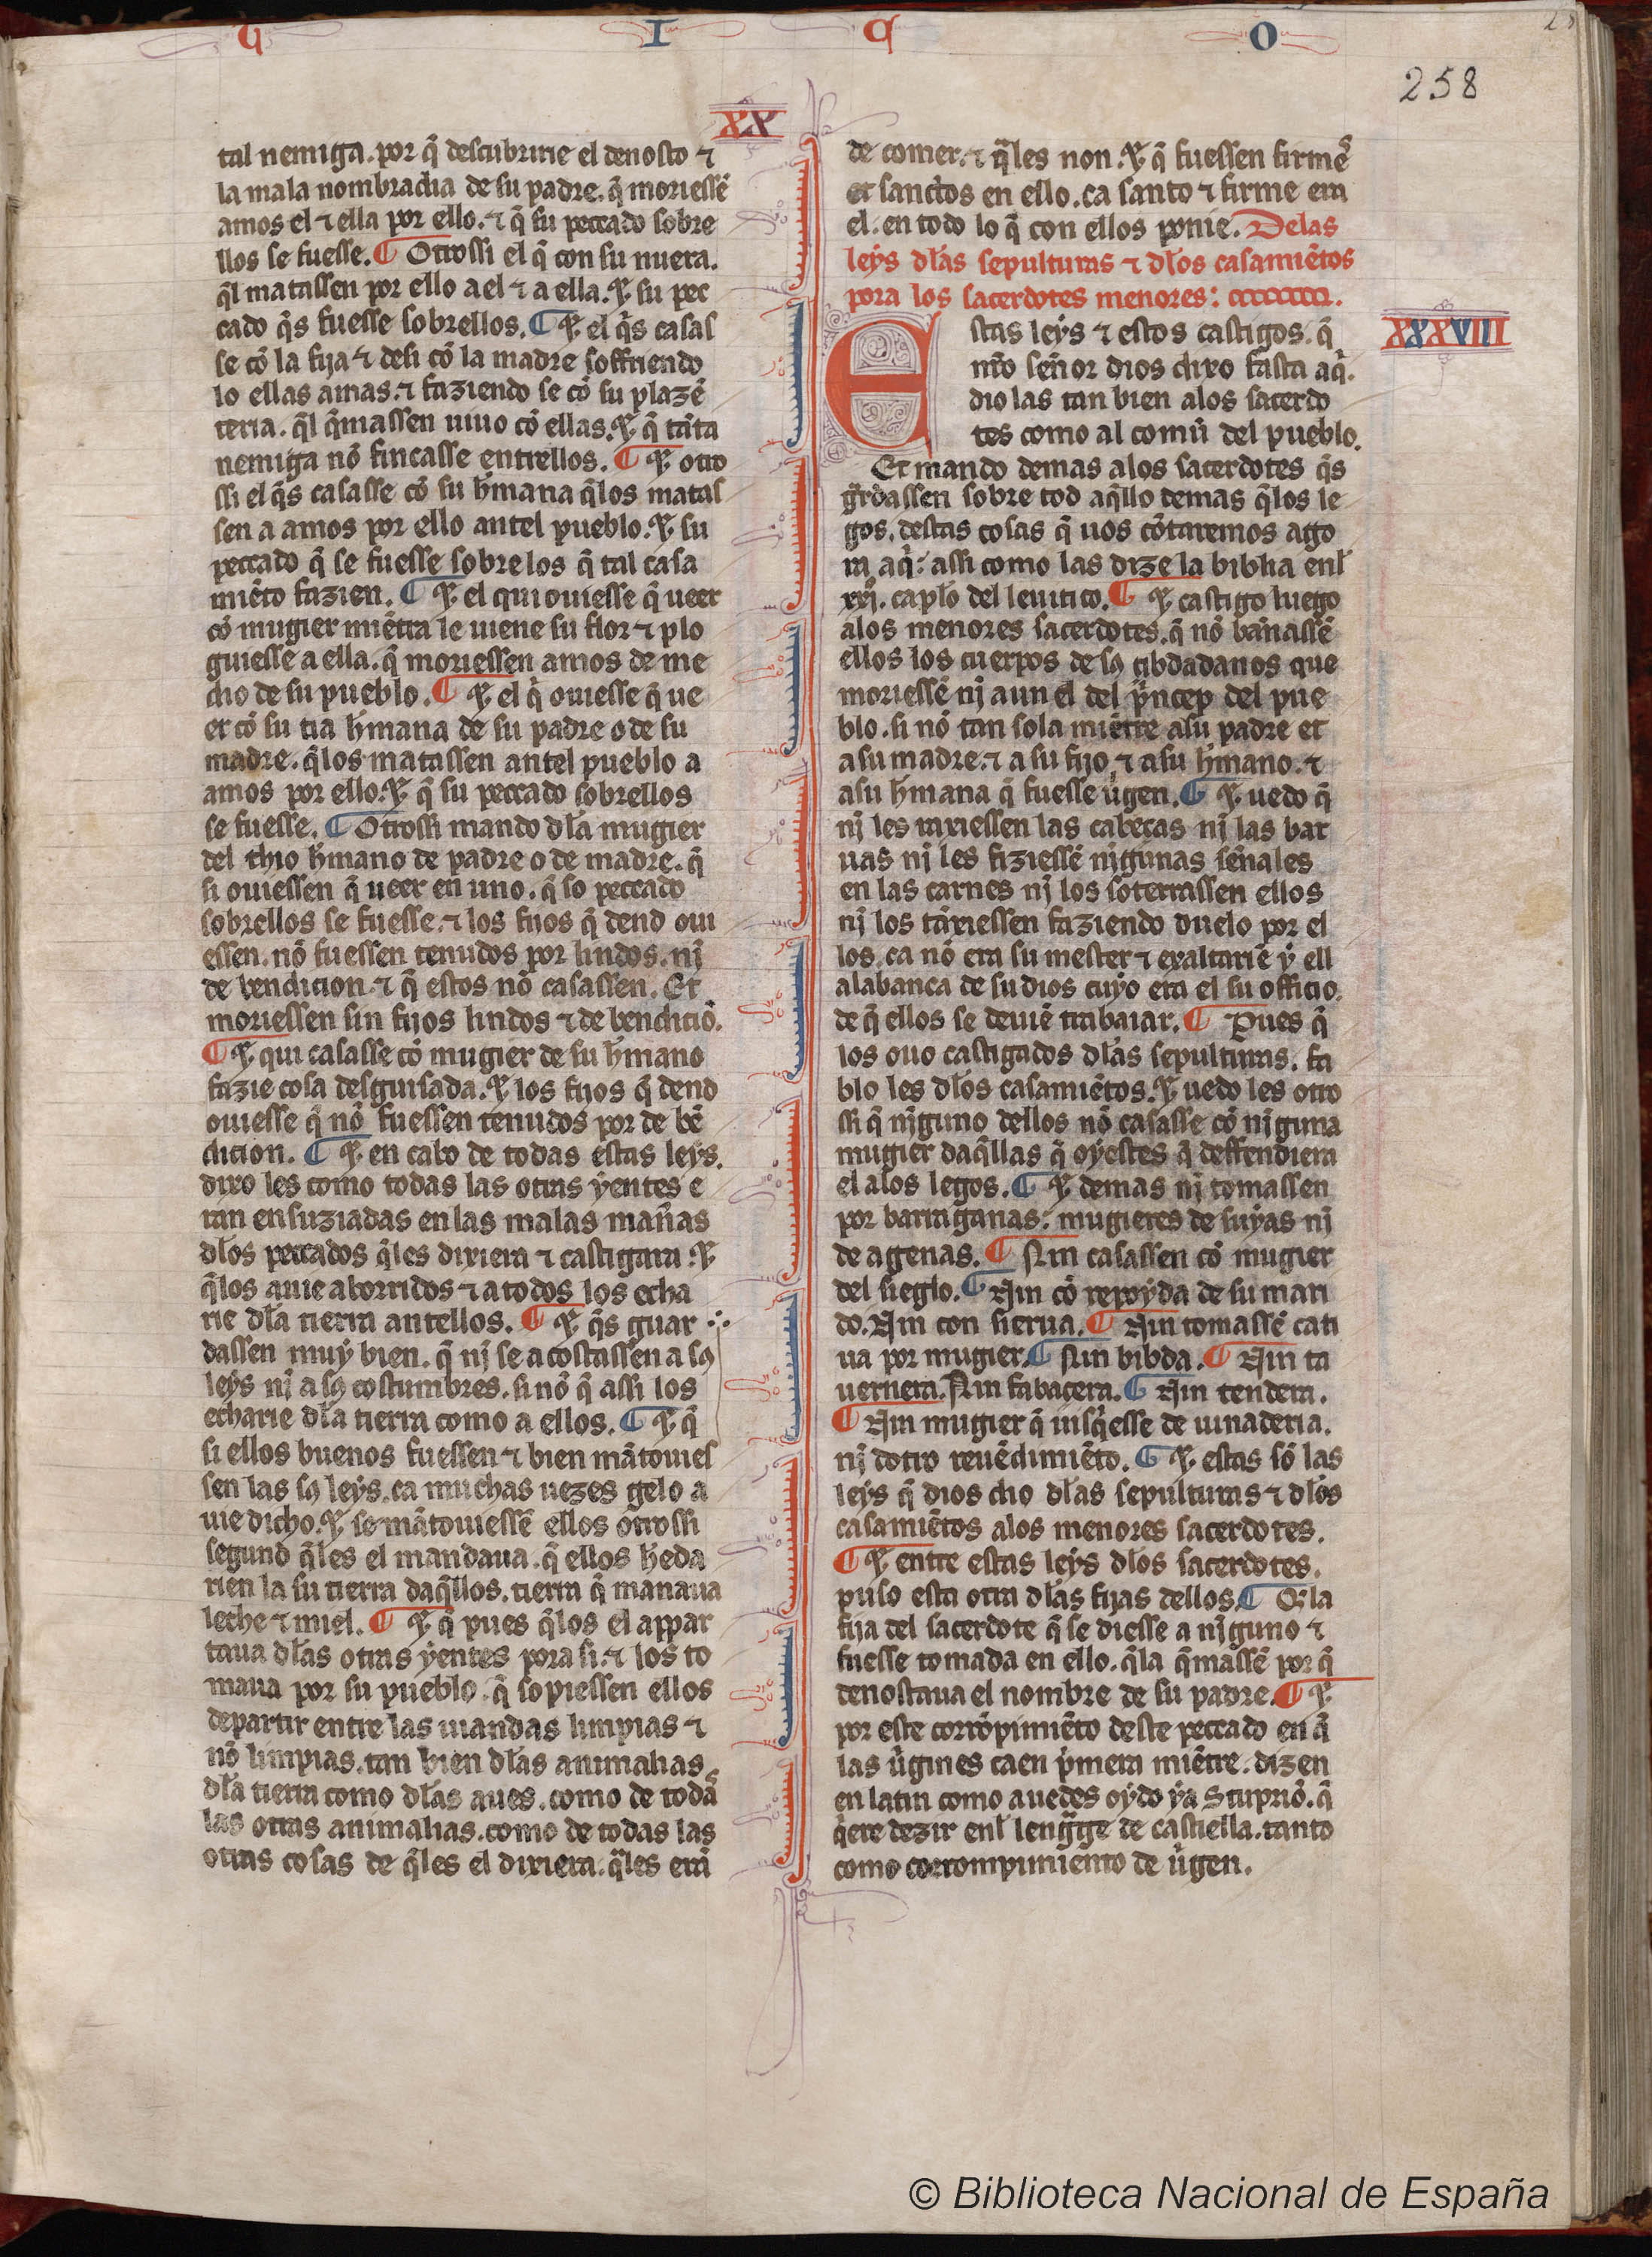 U I C O
258
XX
tal nemiga. por q̃ descubririe el denosto ⁊
la mala nombradia de su padre. q̃ moriessẽ
amos el ⁊ ella por ello. ⁊ q̃ su peccado sobre
llos se fuesse. ¶ Otrossi el q̃ con su nuera.
q̃l matassen por ello a el ⁊ a ella. ⁊ su pec
cado q̃s fuesse sobrellos. ¶ ⁊ el q̃s casas
se cõ la fija ⁊ desi cõ la madre soffriendo
lo ellas amas. ⁊ faziendo se cõ su plazẽ
teria. q̃l q̃massen uiuo cõ ellas. ⁊ q̃ tãta
nemiga nõ fincasse entrellos. ¶ ⁊ otro
ssi el q̃s casasse cõ su h̃mana q̃los matas
sen a amos por ello antel pueblo. ⁊ su
peccado q̃ se fuesse sobre los q̃ tal casa
miẽto fazien. ¶ ⁊ el qui ouiesse q̃ ueer
cõ mugier miẽtra le uiene su flor ⁊ plo
guiesse a ella. q̃ moriessen amos de me
dio de su pueblo. ¶ ⁊ el q̃ ouiesse q̃ ue
er cõ su tia h̃mana de su padre o de su
madre. q̃los matassen antel pueblo a
amos por ello. ⁊ q̃ su peccado sobrellos
se fuesse. ¶ Otrossi mando dl̃a mugier
del thio h̃mano de padre o de madre. q̃
si ouiessen q̃ ueer en uno. q̃ so peccado
sobrellos se fuesse. ⁊ los fijos q̃ dend oui
essen. nõ fuessen tenudos por lindos. nj̃
de bendicion. ⁊ q̃ estos nõ casassen. Et
moriessen sin fijos lindos ⁊ de bendiciõ.
¶ ⁊ qui casasse cõ mugier de su h̃mano
fazie cosa desguisada. ⁊ los fijos q̃ dend
ouiesse q̃ nõ fuessen tenudos por de bẽ
dicion. ¶ ⁊ en cabo de todas estas leys.
dixo les como todas las otras yentes e
ran ensuziadas en las malas mañas
dl̃os peccados q̃les dixiera ⁊ castigara. ⁊
q̃los auie aborridos ⁊ a todos los echa
rie dl̃a tierra antellos. ¶ ⁊ q̃s guar
dassen muy bien. q̃ nj̃ se acostassen a sꝯ
leys nj̃ a sꝯ costumbres. si nõ q̃ assi los
echarie dl̃a tierra como a ellos. ¶ ⁊ q̃
si ellos buenos fuessen ⁊ bien mãtouies
sen las sꝯ leys. ca muchas uezes gelo a
uie dicho. ⁊ se mãtouiessẽ ellos otrossi
segund q̃les el mandaua. q̃ ellos h̃eda
rien la su tierra daq̃llos. tierra q̃ manaua
leche ⁊ miel. ¶ ⁊ q̃ pues q̃los el appar
taua dl̃as otras yentes pora si. ⁊ los to
maua por su pueblo. q̃ sopiessen ellos
departir entre las uiandas limpias ⁊
nõ limpias. tan bien dl̃as animalias
dl̃a tierra como dl̃as aues. como de todã
las otras animalias. como de todas las
otras cosas de q̃les el dixiera. q̃les erã
de comer. ⁊ q̃les non. ⁊ q̃ fuessen firmẽ
et sanctos en ello. ca santo ⁊ firme era
el. en todo lo q̃ con ellos ponie. Delas
leys dl̃as sepulturas ⁊ dl̃os casamiẽtos
pora los sacerdotes menores:
XXXVIII
Estas leys ⁊ estos castigos. q̃
nr̃o señor dios dixo fasta aq̃.
dio las tan bien alos sacerdo
tes como al comũ del pueblo.
Et mando demas alos sacerdotes q̃s
gr̃dassen sobre tod aq̃llo demas q̃los le
gos. destas cosas q̃ uos cõtaremos ago
ra aq̃: assi como las dize la biblia enl̃
xxj. capl̃o del leuitico. ¶ ⁊ castigo luego
alos menores sacerdotes. q̃ nõ bañassẽ
ellos los cuerpos de sꝯ cibdadanos que
moriessẽ nj̃ aun el del p̃ncep del pue
blo. si nõ tan sola miẽtre a su padre et
a su madre. ⁊ a su fijo. ⁊ a su h̃mano. ⁊
a su h̃mana q̃ fuesse ũgen. ¶ ⁊ uedo q̃
nj̃ les raxiessen las cabeças nj̃ las bar
uas nj̃ les fiziessẽ nj̃gunas señales
en las carnes nj̃ los soterrassen ellos
nj̃ los tãxiessen faziendo duelo por el
los. ca nõ era su mester ⁊ exaltariẽ y ell
alabança de su dios cuyo era el su officio.
de q̃ ellos se deuiẽ trabaiar. ¶ Pues q̃
los ouo castigados dl̃as sepulturas. fa
blo les dl̃os casamiẽtos. ⁊ uedo les otro
ssi q̃ nj̃guno dellos nõ casasse cõ nj̃guna
mugier daq̃llas q̃ oyestes q̃ deffendiera
el alos legos. ¶ ⁊ demas nj̃ tomassen
por barraganas: mugieres de suyas nj̃
de agenas. ¶ Nin casassen cõ mugier
del sieglo. ¶ Nin cõ repoyda de su mari
do. Nin con sierua. ¶ Nin tomassẽ cati
ua por mugier. ¶ Nin bibda. ¶ Nin ta
uernera. Nin fabacera. ¶ Nin tendera.
¶ Nin mugier q̃ uisq̃esse de uinaderia.
nj̃ dotro reuẽdimiẽto. ¶ ⁊ estas sõ las
leys q̃ dios dio dl̃as sepulturas ⁊ dl̃os
casamiẽtos alos menores sacerdotes.
¶ ⁊ entre estas leys dl̃os sacerdotes.
puso esta otra dl̃as fijas dellos. ¶ Q̃ la
fija del sacerdote q̃ se diesse a nj̃guno ⁊
fuesse tomada en ello. q̃la q̃massẽ por q̃
denostaua el nombre de su padre. ¶ ⁊
por este corrõpimiẽto deste peccado en q̃
las ũgines caen p̃mera miẽtre. dizen
en latin como auedes oydo ya Stuprũ. q̃
q̃ere dezir enl̃ lengg̃e de castiella. tanto
como corrompimiento de ũgen.
© Biblioteca Nacional de España